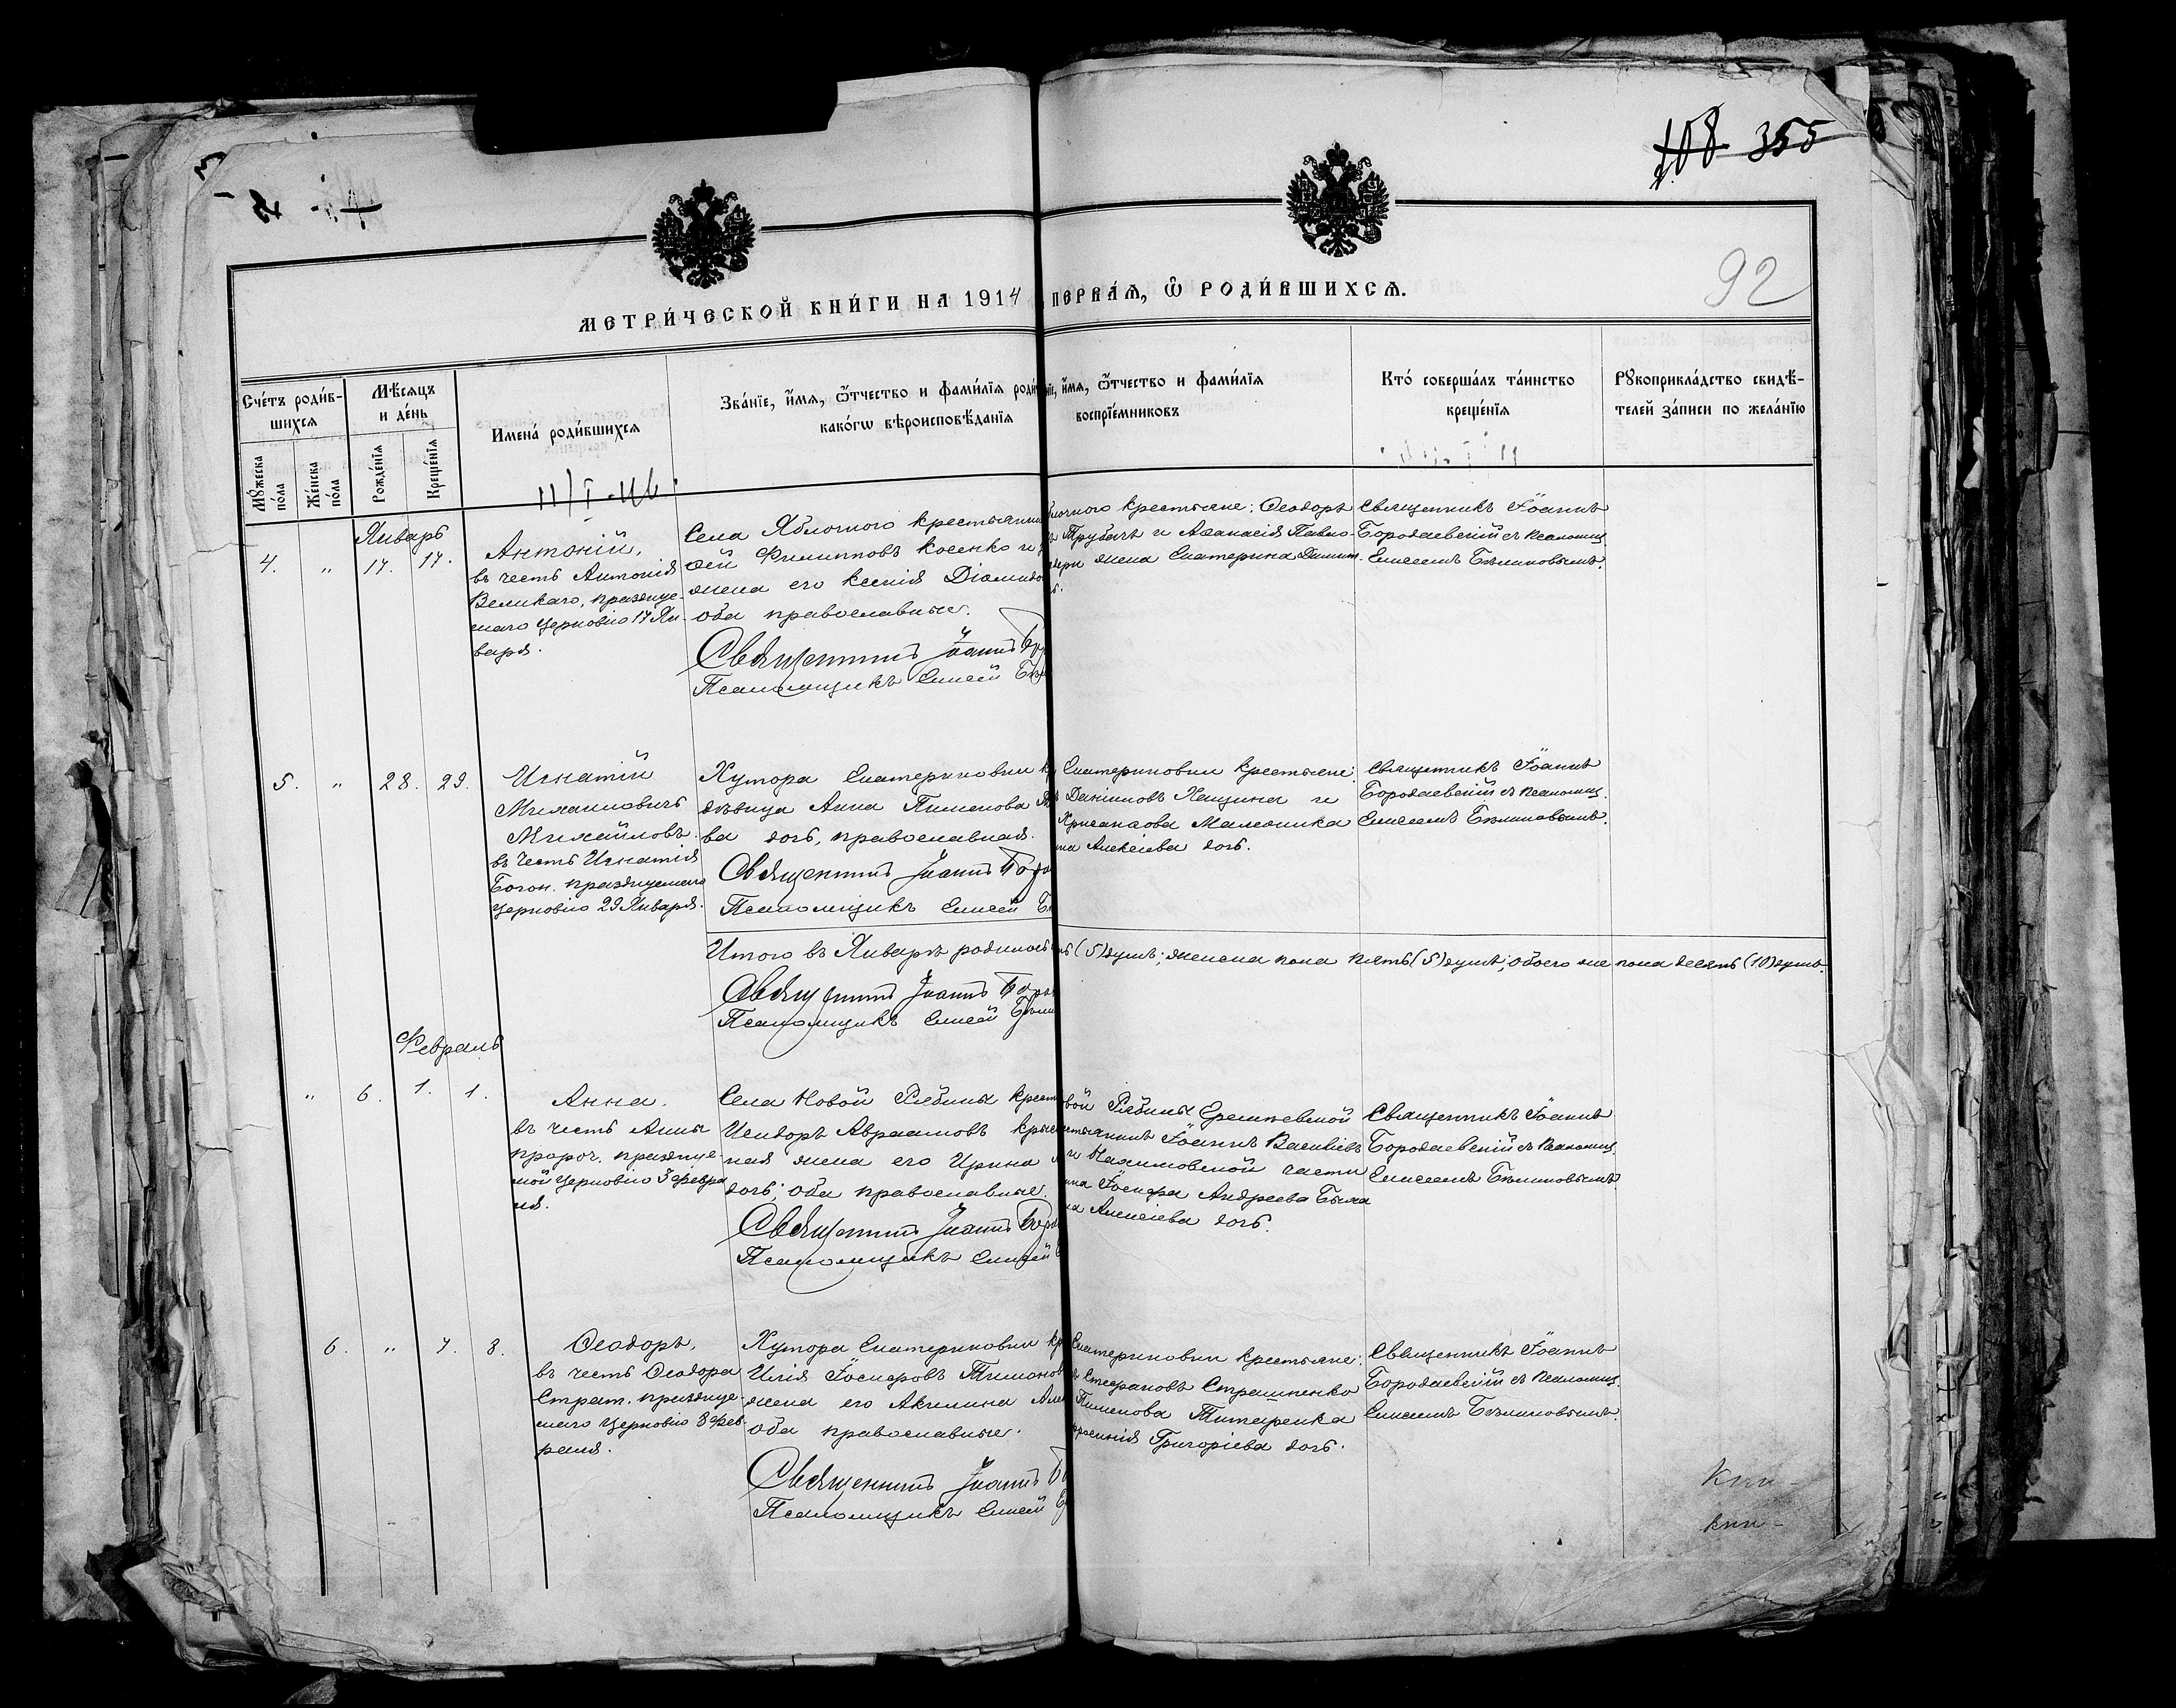 108 355
92
МЕТРИ́ЧЕСКОЙ КНИ́ГИ НА 1914
ПЕРВА́Я, Ѿ РОДИ́ВШИХСЯ.
Сче́тъ роди́в-
шихся
Му́жеска
по́ла
Же́нска
по́ла
Мѣ́сяцъ
и де́нь
Рожде́нїя
Креще́нїя
Имена́ роди́вшихся
Зва́нїе, и́мя, ѻ҆́тчество и фами́лїя роди
како́гѡ вѣроисповѣ́данїя
нїе, и́мя, ѻ҆́тчество и фами́лїя
воспрїе́мниковъ
Кто́ соверша́лъ та́инство
креще́нїя
Рꙋкоприкла́дство свидѣ́-
телей за́писи по жела́нїю
Январь
4. " 17. 17.
Антоній,
въ честь Антонія
Великаго, празднуе-
маго Церковію 17 Ян-
варя.
Села Яблочного крестьянин
ѳей Филипповъ Косенко и
жена его Ксенія Діомидо
оба православные.
Священникъ Іоаннъ
Псаломщикъ Елисей
лочного крестьяне: Ѳеодоръ
ъ Трубачъ и Аѳанасія Павло-
жена Екатерина Димит
Священникъ Іоаннъ
Бородаевскій съ псаломщ.
Елисеемъ Бѣликовымъ.
5. " 28. 29.
Игнатій
Михаиловичъ
Михайловъ.
въ честь Игнатія
Богон. празднуемаго
Церковію 29 Января.
Хутора Екатериновки к
дѣвица Анна Пименова
ва дочь, православная.
Священникъ Іоаннъ Боро
Псаломщикъ Елисей
Екатериновки крестьяне:
Даніиловъ Лещина и
Хрисанѳова Малюника
на Алексіева дочь.
Священникъ Іоаннъ
Бородаевскій съ псаломщ.
Елисеемъ Бѣликовымъ.
Итого въ Январѣ родилось
ть (5) душъ; женска пола пять (5) душъ; обоего же пола десять (10) душъ.
Священникъ Іоаннъ Боро
Псаломщикъ Елисей Бѣли
Февраль
" 6. 1. 1.
Анна.
въ честь Анны
пророч. празднуе-
мой Церковію 3 Февра
ля.
Села Новой Рябины крест
Исидоръ Авраамовъ
ная жена его Ирина
дочь; оба православные.
Священникъ Іоаннъ Боро
Псаломщикъ Елисей
вой Рябины
естьянинъ Іоаннъ Васильевъ
и части
на Іосифа Андреева
на Алексіева дочь.
Священникъ Іоаннъ
Бородаевскій съ псаломщ.
Елисеемъ Бѣликовымъ.
6. " 7. 8.
Ѳеодоръ,
въ честь Ѳеодора
Страт. празднуе-
маго Церковію 8 Фев-
раля.
Хутора Екатериновки кр
Илія Іосифовъ Тимонов
жена его Акилина Але
оба православные.
Священникъ Іоаннъ
Псаломщикъ Елисей
Екатериновки крестьяне:
Стефановъ Страшненко
Пименова Титаренка
Григоріева дочь.
Священникъ Іоаннъ
Бородаевскій съ псаломщ.
Елисеемъ Бѣликовымъ.